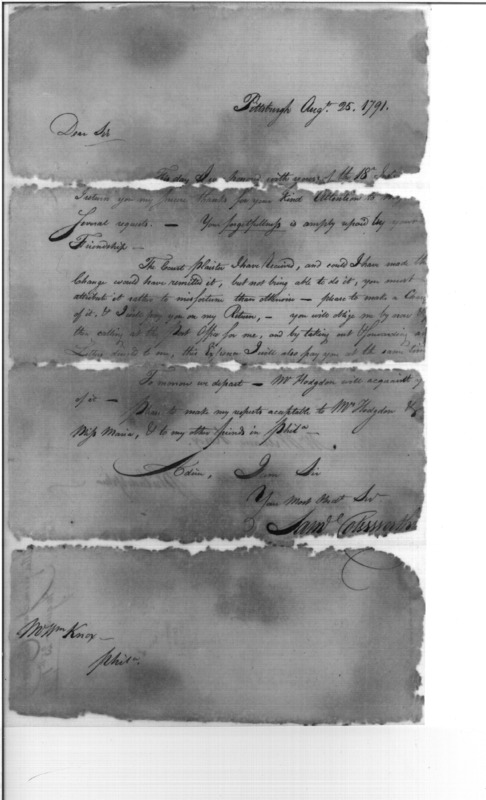 Pittsburgh Augt. 25. 1791.
Dear Sir
To day I am honored with yours of the 18
I return you my sincere thanks for your kind Attention to my
several requests. — Your forgetfullness is amply
Friendship —
The Court plaister I have received, and could I have made the
Change would have remitted it, but not being able to do it, you must
attribute it rather to misfortune than otherwise — please to make a
of it. & I will pay you on my Return, — you will oblige me by now &
then calling at the Post Office for me, and by taking out
to me, this I will also pay you at the same time
To morrow we depart — Mr Hodgdon will acquaint y
of it — please to make my respects acceptable to Mrs Hodgdon &
Miss Maria, & to my other friends in Phila —
Adieu, I am Sir
Your Most Obedt Serv
Saml
Mr Wm Knox —
Phila.